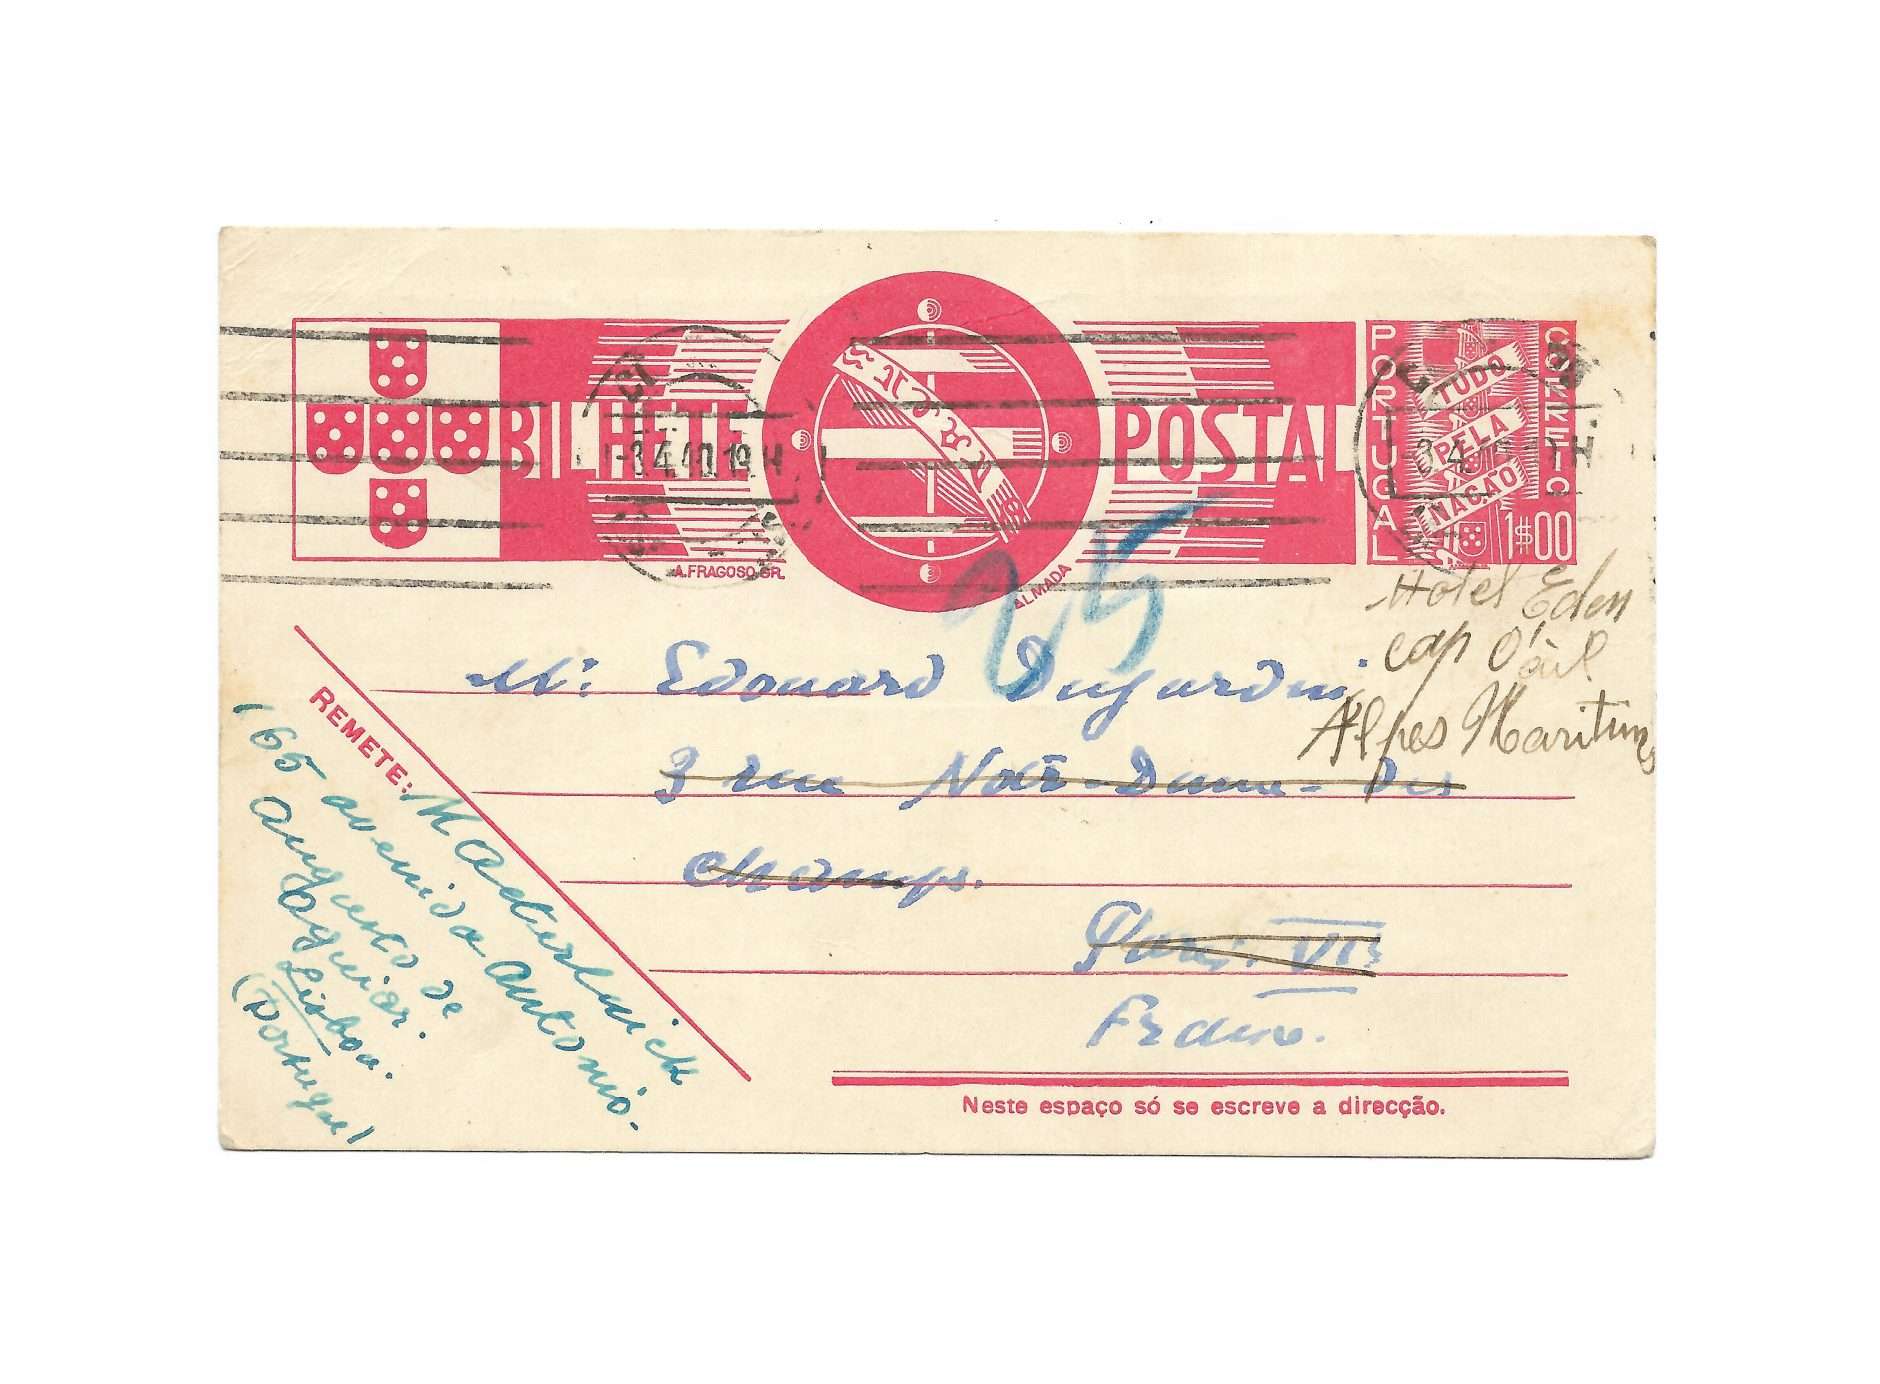 PORTUGAL
CORREIO
TUDO
PELA
NAÇÃO
1$00
BILHETE POSTAL
-3.4.40.19 H
A. FRAGOSO GR.
ALMADA
25
Hotel Eden
cap d'ail
Alpes Maritimes
Mr: Edouard Dujardin
3 rue Notre-Dame-des
champs.
Paris VIe
France.
REMETE: Maeterlinck
165 avenida Antonio
Augusto de
Aguiar.
Lisboa.
(Portugal)
Neste espaço só se escreve a direcção.